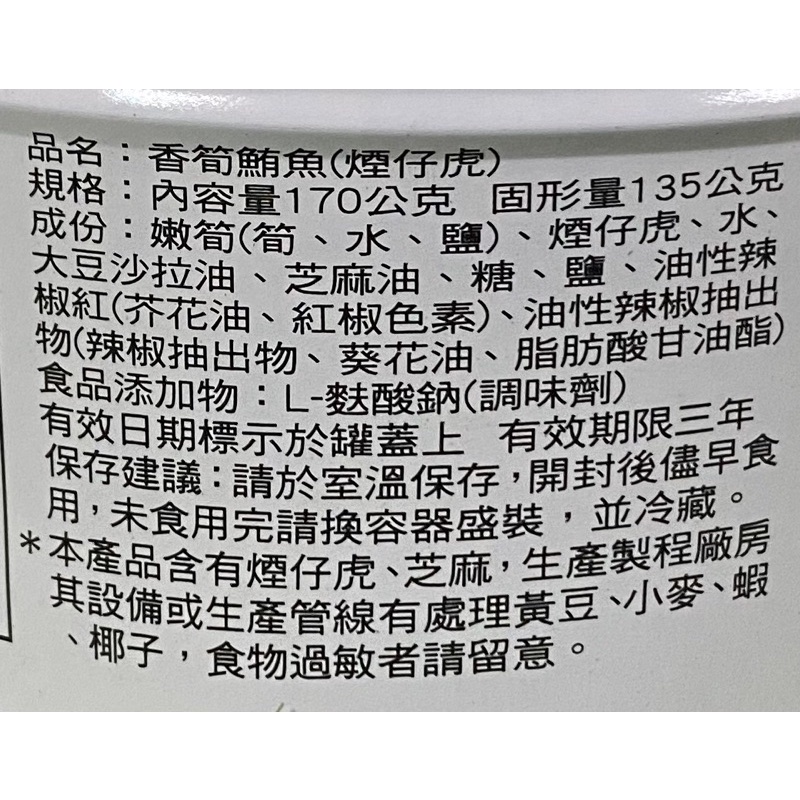 品名：香筍鮪魚(煙仔虎)
規格：內容量170公克 固形量135公克
成份：嫩筍(筍、水、鹽)、煙仔虎、水、
大豆沙拉油、芝麻油、糖、鹽、油性辣
椒紅(芥花油、紅椒色素)、油性辣椒抽出
物(辣椒抽出物、葵花油、脂肪酸甘油酯)
食品添加物：L-麩酸鈉(調味劑)
有效日期標示於罐蓋上 有效期限三年
保存建議：請於室溫保存，開封後儘早食
用，未食用完請換容器盛裝，並冷藏。
*本產品含有煙仔虎、芝麻，生產製程廠房
其設備或生產管線有處理黃豆、小麥、蝦
、椰子，食物過敏者請留意。